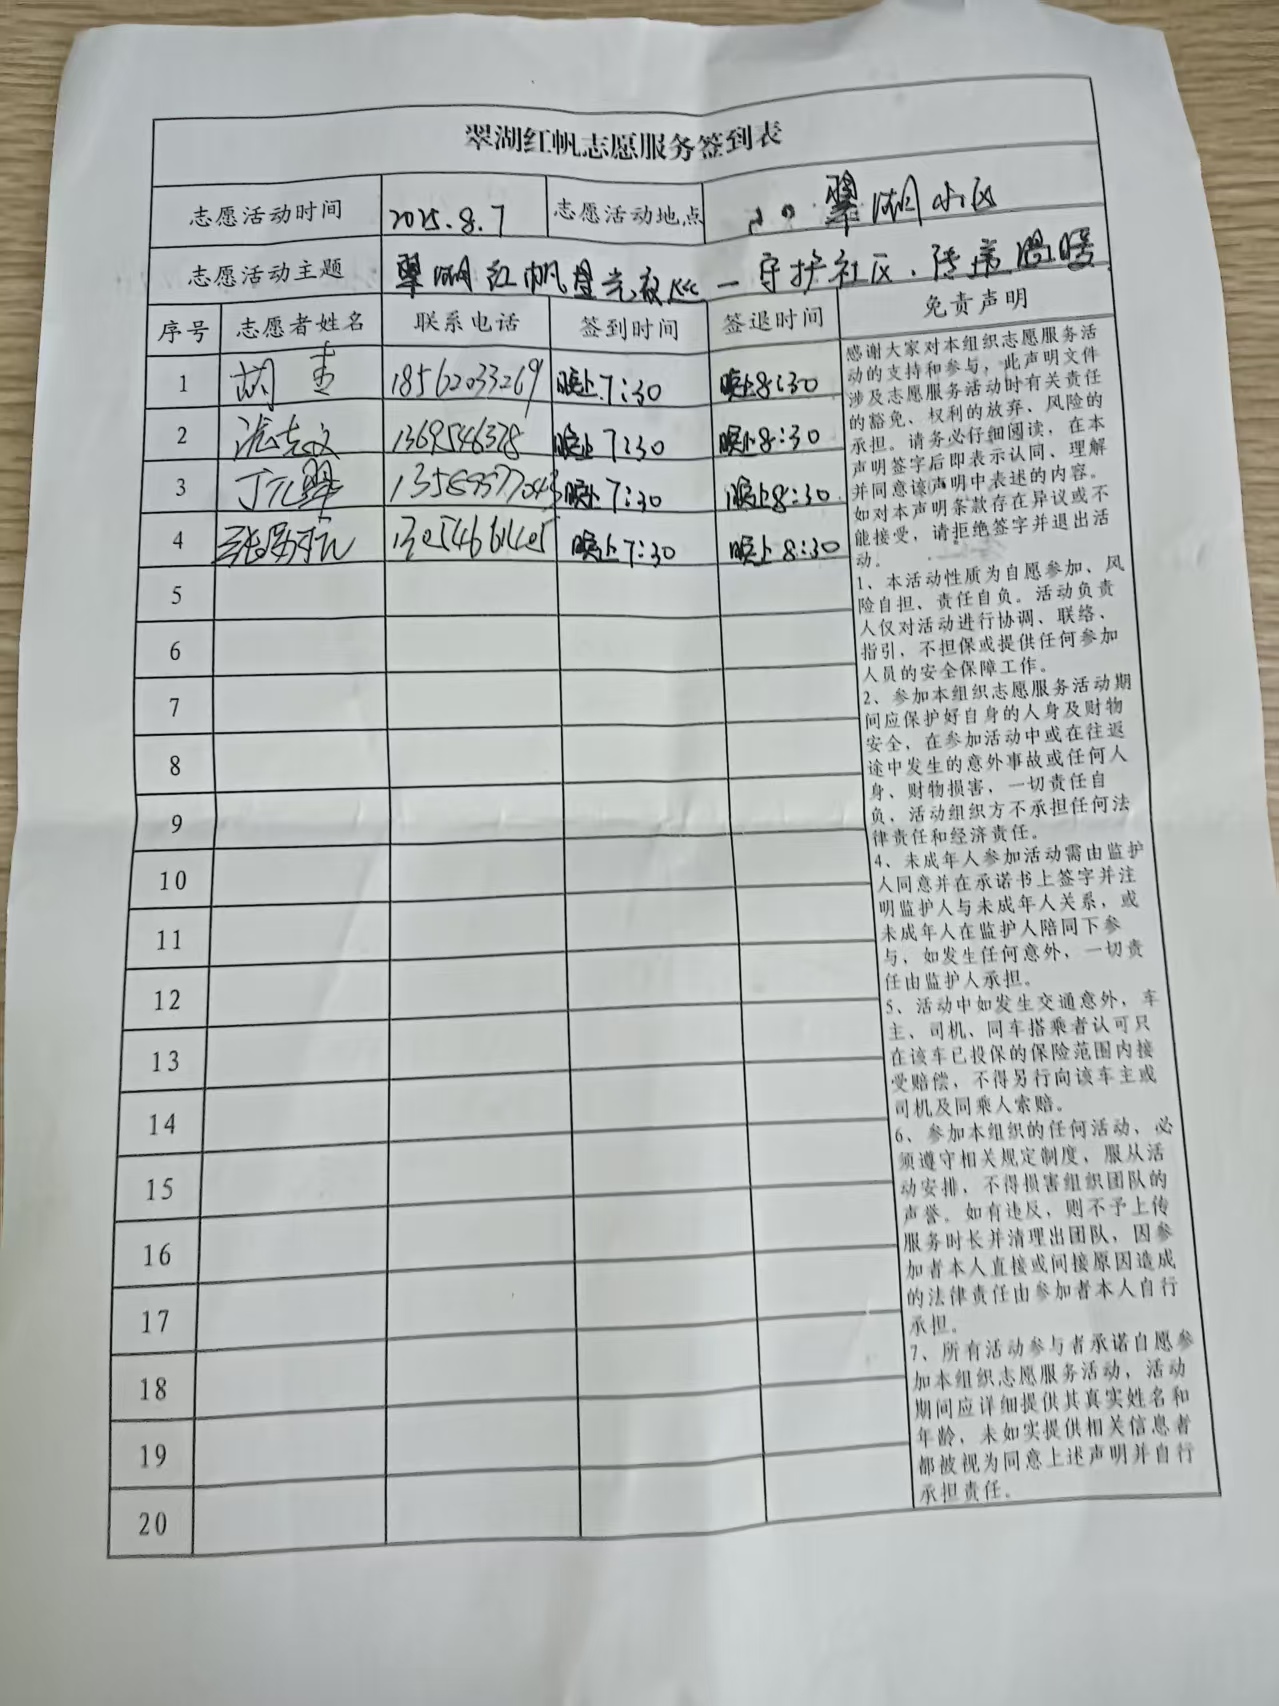 翠湖红帆志愿服务签到表
志愿活动时间 2025.8.7 志愿活动地点 翠湖小区
志愿活动主题 翠湖红帆星光夜巡—守护社区、传递温暖
序号 志愿者姓名 联系电话 签到时间 签退时间 免责声明
1 胡 18562033269 晚上7:30 晚上8:30
2 志文 1369546378 晚上7:30 晚上8:30
3 丁元翠 13589577043 晚上7:30 晚上8:30
4 晚上7:30 晚上8:30
5
6
7
8
9
10
11
12
13
14
15
16
17
18
19
20
感谢大家对本组织志愿服务活
动的支持和参与，此声明文件
涉及志愿服务活动时有关责任
的豁免、权利的放弃、风险的
承担。请务必仔细阅读，在本
声明签字后即表示认同、理解
并同意该声明中表述的内容。
如对本声明条款存在异议或不
能接受，请拒绝签字并退出活
动。
1、本活动性质为自愿参加、风
险自担、责任自负。活动负责
人仅对活动进行协调、联络、
指引，不担保或提供任何参加
人员的安全保障工作。
2、参加本组织志愿服务活动期
间应保护好自身的人身及财物
安全，在参加活动中或在往返
途中发生的意外事故或任何人
身、财物损害，一切责任自
负，活动组织方不承担任何法
律责任和经济责任。
4、未成年人参加活动需由监护
人同意并在承诺书上签字并注
明监护人与未成年人关系，或
未成年人在监护人陪同下参
与，如发生任何意外，一切责
任由监护人承担。
5、活动中如发生交通意外，车
主、司机、同车搭乘者认可只
在该车已投保的保险范围内接
受赔偿，不得另行向该车主或
司机及同乘人索赔。
6、参加本组织的任何活动，必
须遵守相关规定制度，服从活
动安排，不得损害组织团队的
声誉。如有违反，则不予上传
服务时长并清理出团队，因参
加者本人直接或间接原因造成
的法律责任由参加者本人自行
承担。
7、所有活动参与者承诺自愿参
加本组织志愿服务活动，活动
期间应详细提供其真实姓名和
年龄，未如实提供相关信息者
都被视为同意上述声明并自行
承担责任。